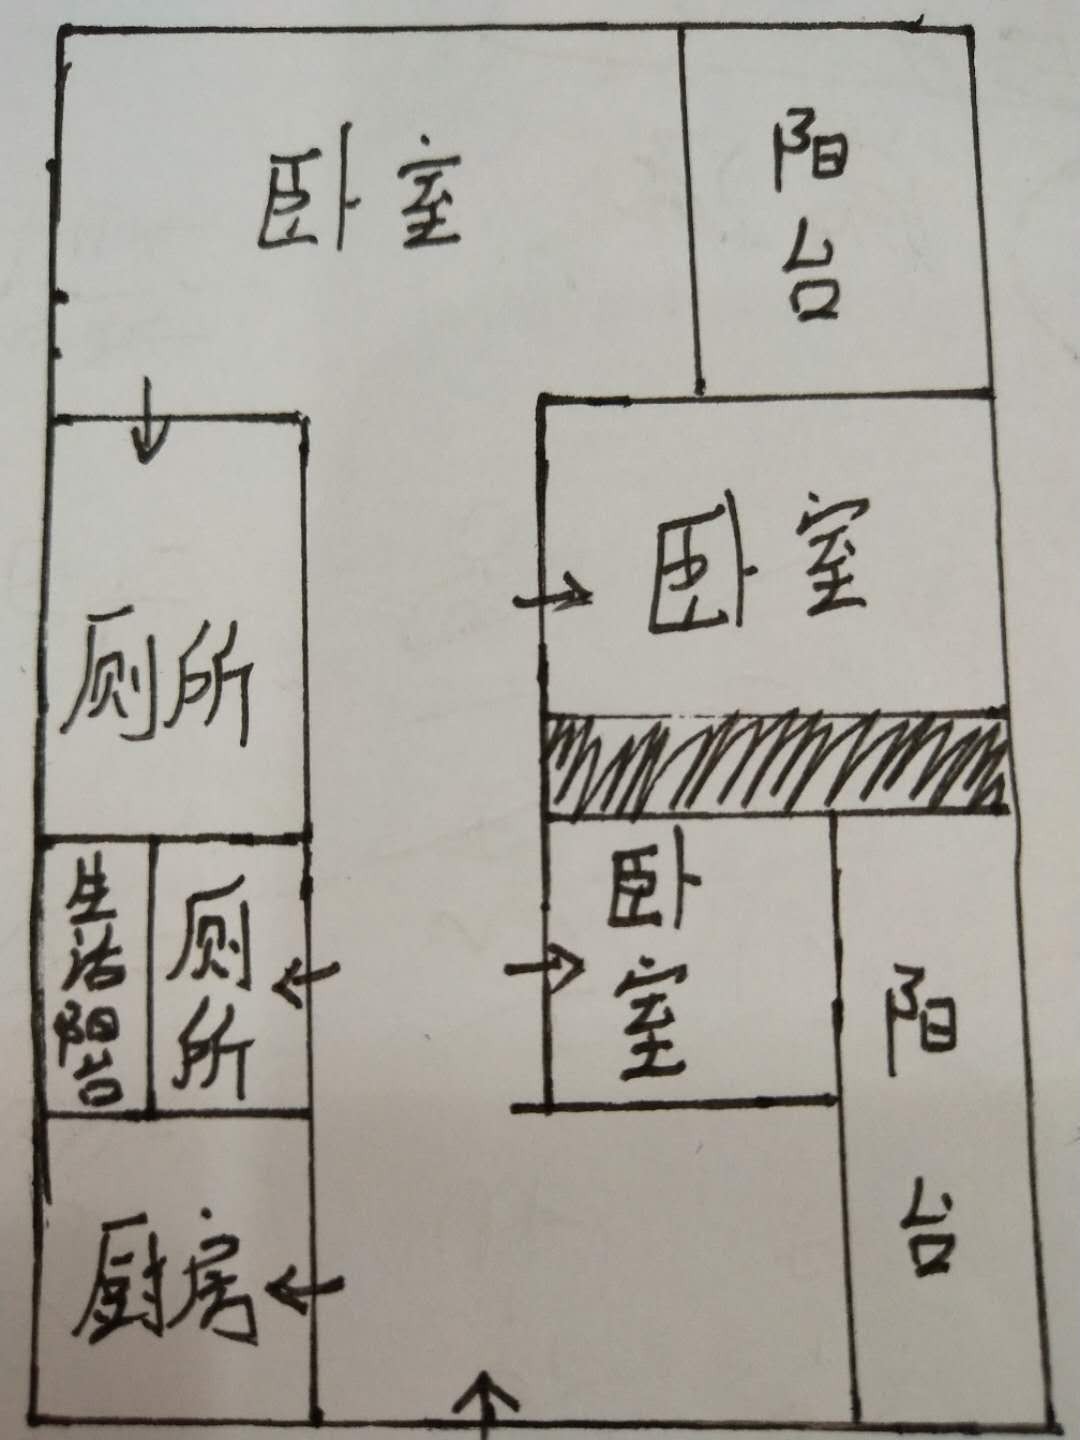 卧室
阳台
卧室
厕所
卧室
生活阳台
厕所
阳台
厨房